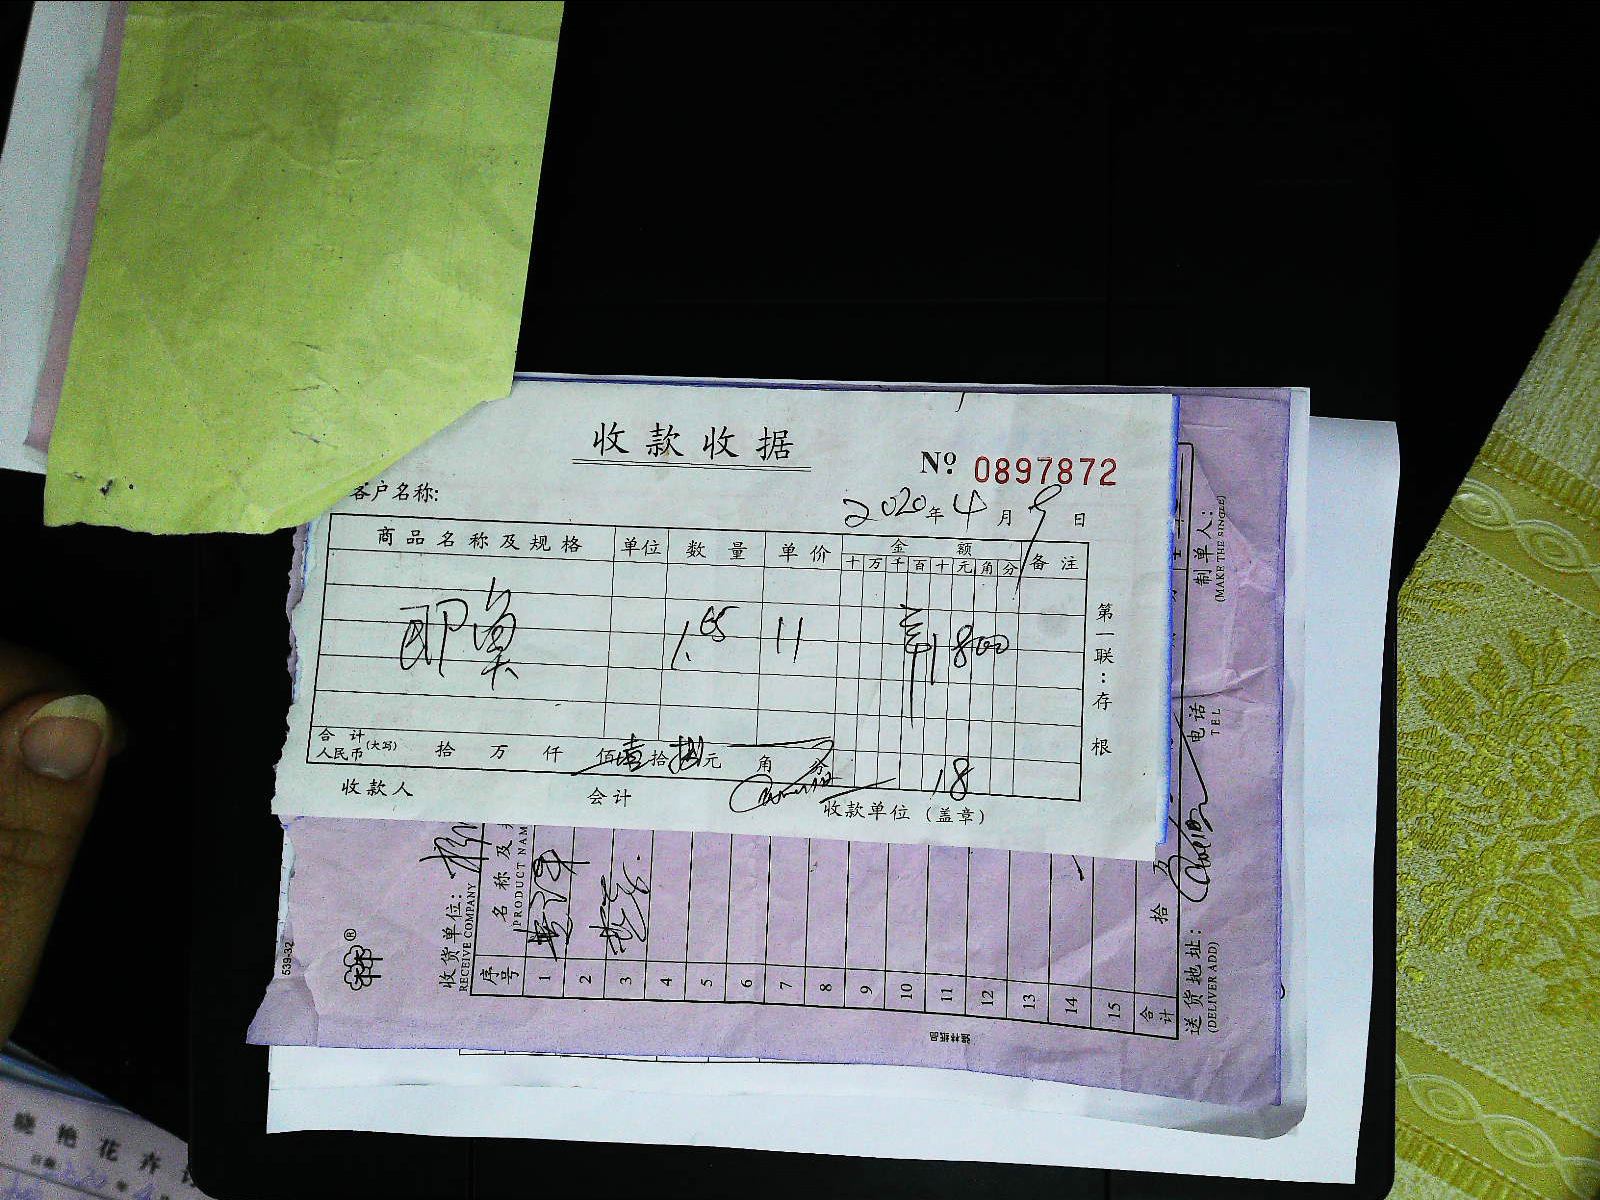 收款收据
№ 0897872
客户名称:
2020年4月9日
商品名称及规格 单位 数量 单价 金额 备注
十 万 千 百 十 元 角 分
1.65 11 1800
合计
人民币(大写) 拾 万 仟 佰壹拾捌元 角 分 18
收款人 会计 收款单位(盖章)
第一联:存根
制单人:
(MAKE THE SINGLE)
电话
TEL
539-32
®
收货单位:
RECEIVE COMPANY
序号 名称及
PRODUCT NAM
1
2
3
4
5
6
7
8
9
10
11
12
13
14
15
合计 拾 万
送货地址:
(DELIVER ADD)
晓艳花卉